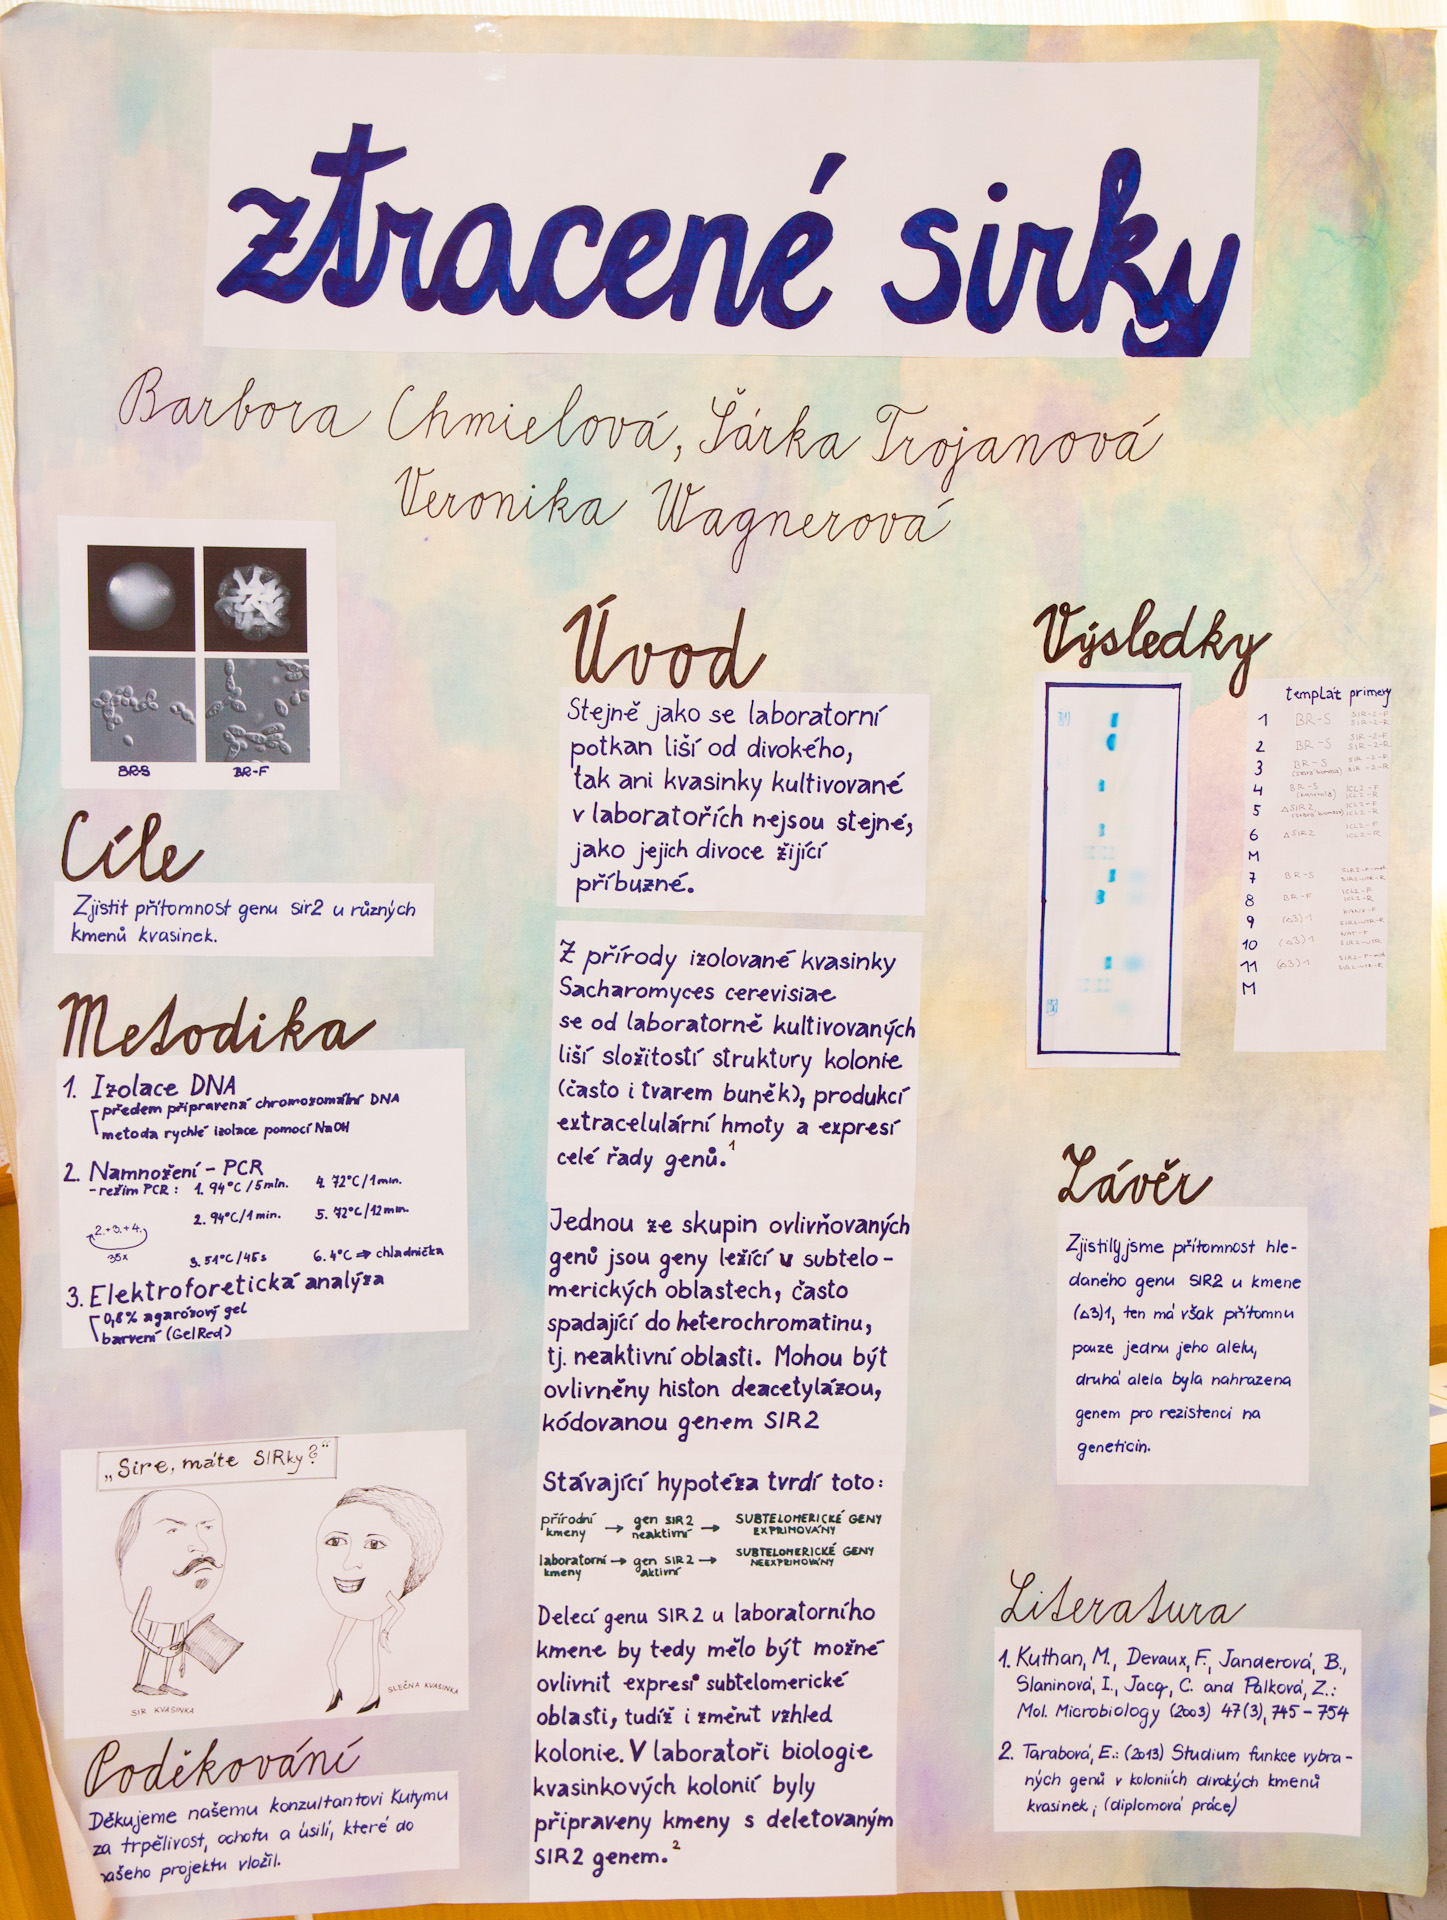 ztracené sirky
Barbora Chmielová, Šárka Trojanová
Veronika Wagnerová
BR-S
BR-F
Cíle
Zjistit přítomnost genu sir2 u různých
kmenů kvasinek.
Metodika
1. Izolace DNA
předem připravená chromozomální DNA
metoda rychlé izolace pomocí NaOH
2. Namnožení - PCR
- režim PCR: 1. 94°C/5min. 4. 72°C/1min.
2. 94°C/1min. 5. 72°C/12min.
2.+3.+4.
35x
3. 51°C/45s 6. 4°C ⇒ chladnička
3. Elektroforetická analýza
0,8% agarózový gel
barvení (GelRed)
„Sire, máte SIRky?"
SIR KVASINKA
SLEČNA KVASINKA
Poděkování
Děkujeme našemu konzultantovi Kutymu
za trpělivost, ochotu a úsilí, které do
našeho projektu vložil.
Úvod
Stejně jako se laboratorní
potkan liší od divokého,
tak ani kvasinky kultivované
v laboratořích nejsou stejné,
jako jejich divoce žijící
příbuzné.
Z přírody izolované kvasinky
Sacharomyces cerevisiae
se od laboratorně kultivovaných
liší složitostí struktury kolonie
(často i tvarem buněk), produkcí
extracelulární hmoty a expresí
celé řady genů.1
Jednou ze skupin ovlivňovaných
genů jsou geny ležící v subtelo-
merických oblastech, často
spadající do heterochromatinu,
tj. neaktivní oblasti. Mohou být
ovlivněny histon deacetylázou,
kódovanou genem SIR2
Stávající hypotéza tvrdí toto:
přírodní kmeny → gen SIR2 neaktivní → SUBTELOMERICKÉ GENY EXPRIMOVÁNY
laboratorní kmeny → gen SIR2 aktivní → SUBTELOMERICKÉ GENY NEEXPRIMOVÁNY
Delecí genu SIR2 u laboratorního
kmene by tedy mělo být možné
ovlivnit expresi subtelomerické
oblasti, tudíž i změnit vzhled
kolonie. V laboratoři biologie
kvasinkových kolonií byly
připraveny kmeny s deletovaným
SIR2 genem.2
Výsledky
templát primery
1 BR-S SIR-2-F SIR-2-R
2 BR-S SIR-2-F SIR-2-R
3 BR-S (stará biomasa) SIR-2-F SIR-2-R
4 BR-S (kontrola) ICL2-F ICL2-R
5 △SIR2 (stará biomasa) ICL2-F ICL2-R
6 △SIR2 ICL2-F ICL2-R
M
7 BR-S
8 BR-F ICL2-F ICL2-R
9 (△3)1
10 (△3)1
11 (△3)1
M
Závěr
Zjistily jsme přítomnost hle-
daného genu SIR2 u kmene
(△3)1, ten má však přítomnu
pouze jednu jeho alelu,
druhá alela byla nahrazena
genem pro rezistenci na
geneticin.
Literatura
1. Kuthan, M., Devaux, F., Janderová, B.,
Slaninová, I., Jacq, C. and Palková, Z.:
Mol. Microbiology (2003) 47(3), 745-754
2. Tarabová, E.: (2013) Studium funkce vybra-
ných genů v koloniích divokých kmenů
kvasinek; (diplomová práce)